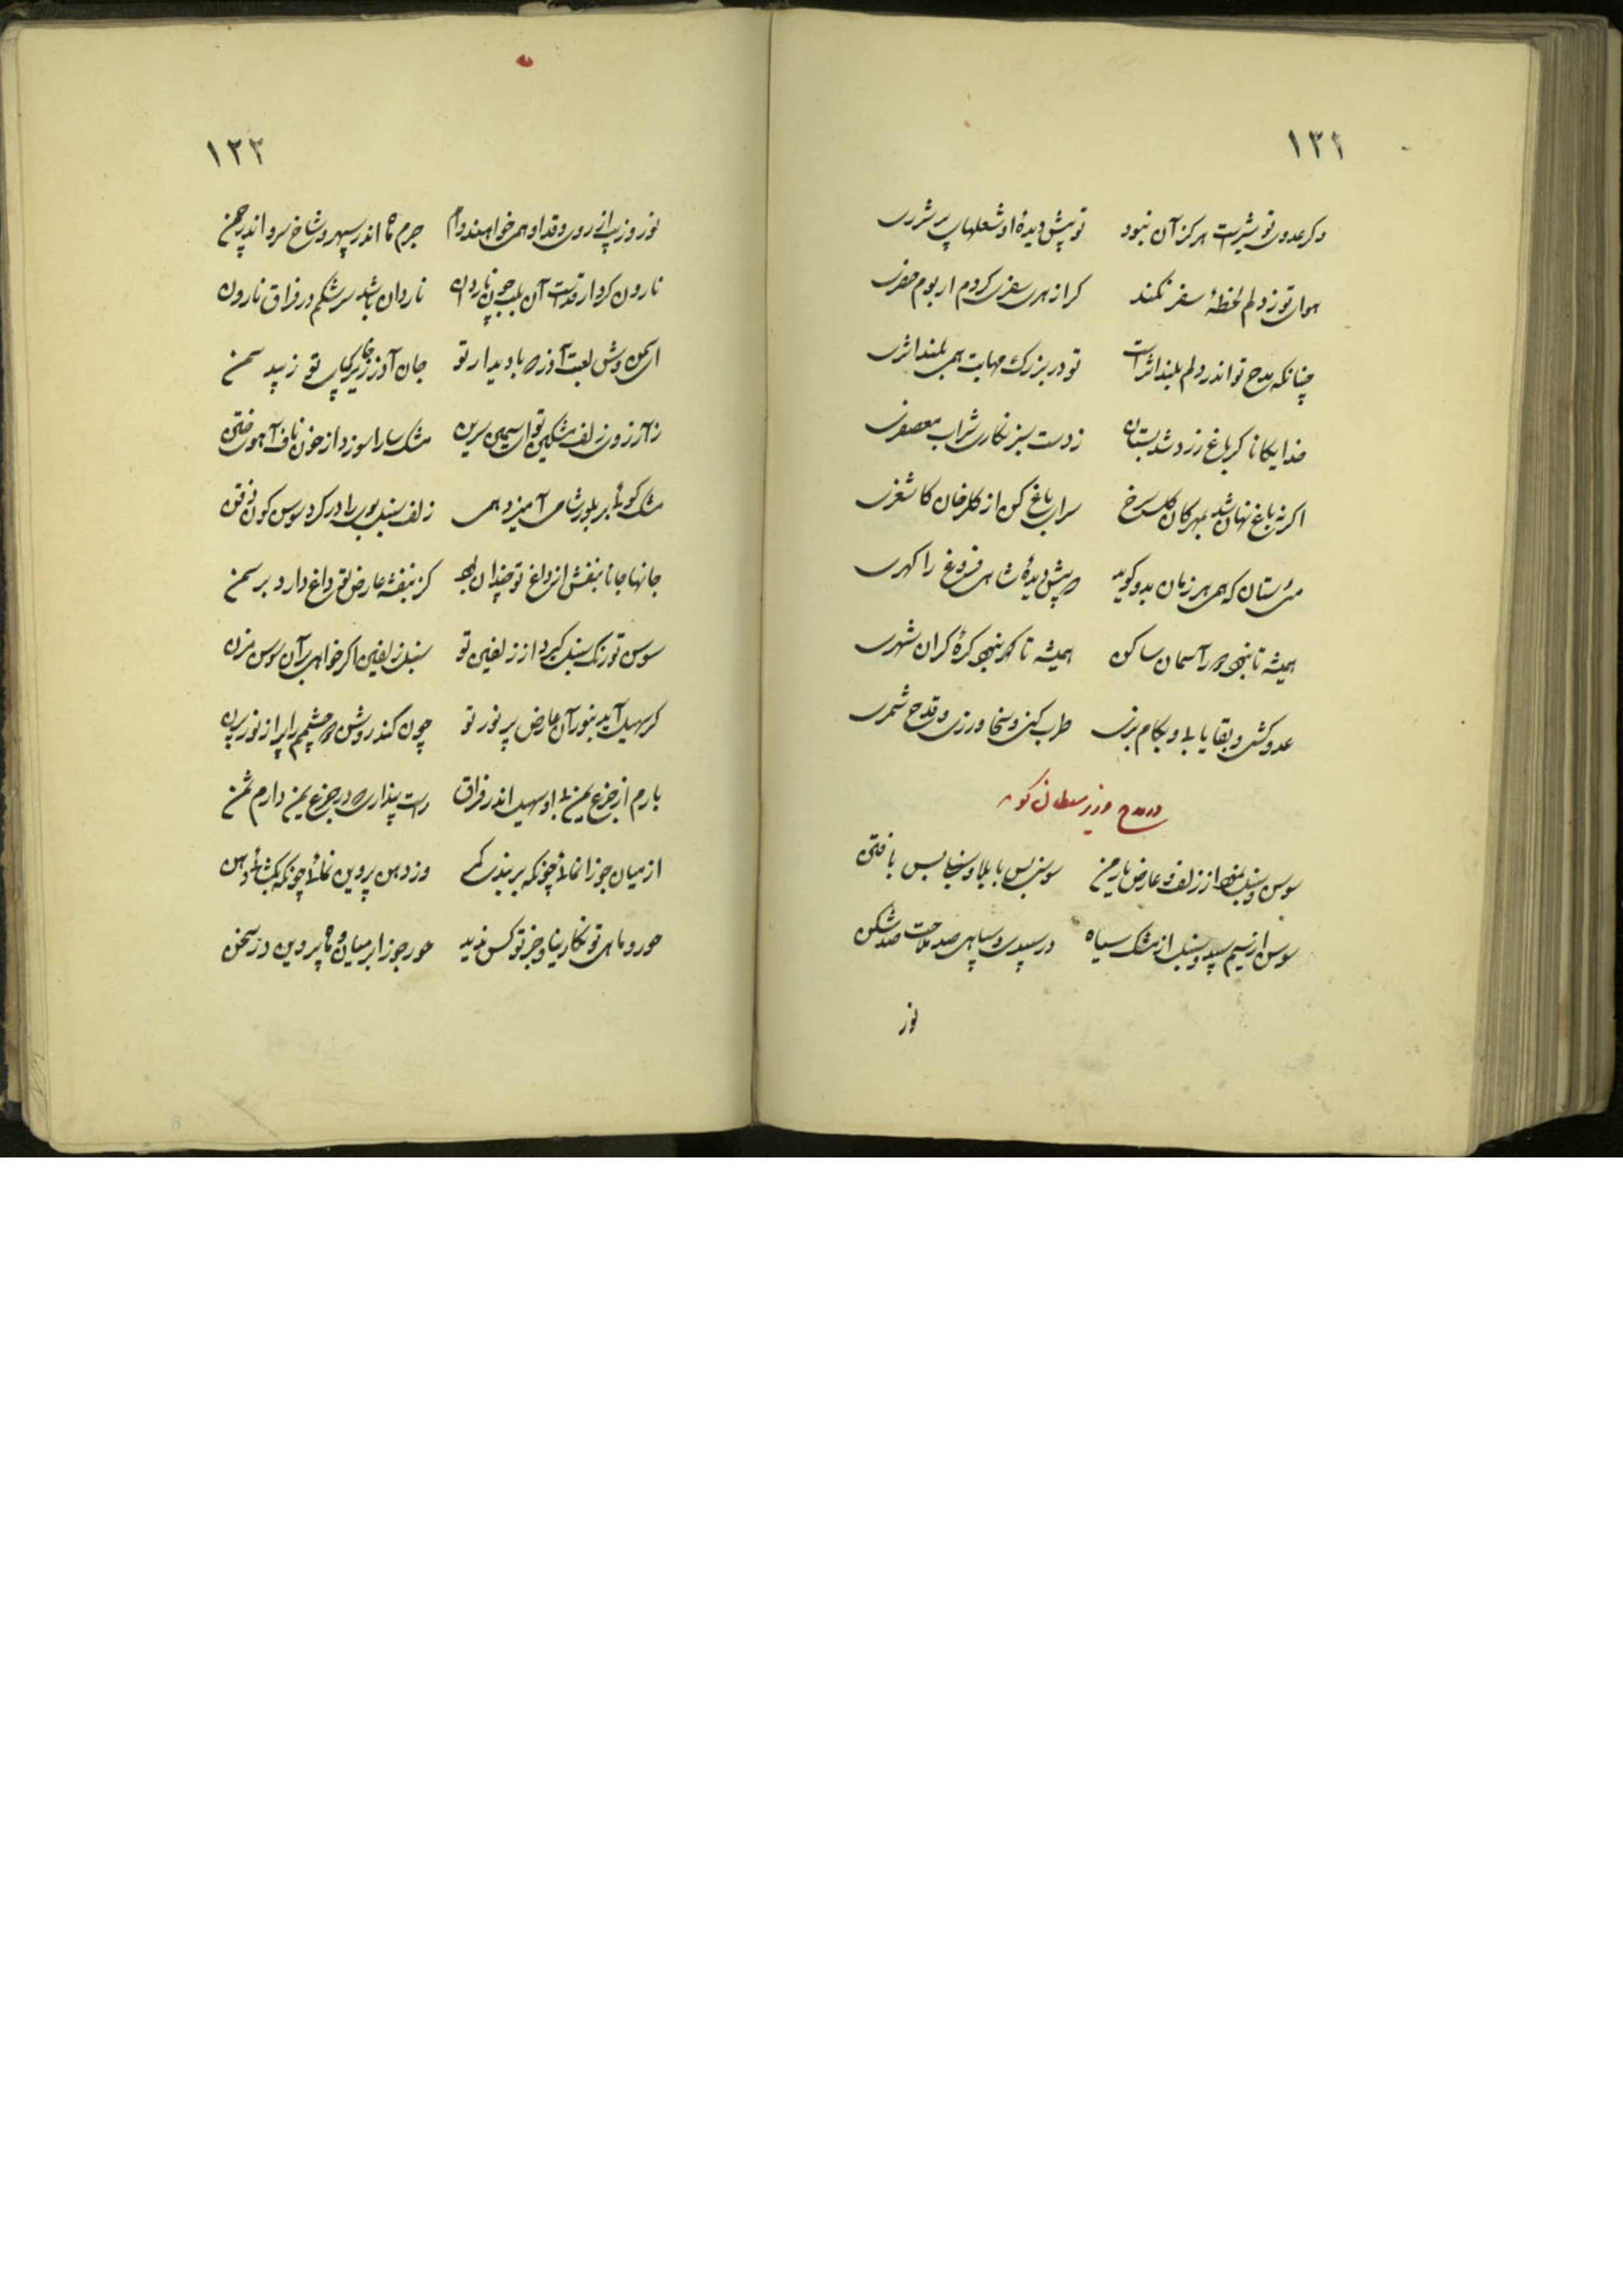 ۱۳۲
وگر عدوی تو شیرست هرگز آن نبود تو پیش دیدهٔ او شعلهای پر شرری
هوای تو ز دلم لحظهٔ سفر نکند گر از هری سفری کردم از بوم حضری
چنانکه مدح تو اندر دلم بلند اثرست تو در بزرگ مهابت همی بلند اثری
خدایگانا گر باغ زرد شد بستان ز دست سبز نگاری شراب معصفری
اگر ز باغ نهان شد بمهرگان گل سرخ سرای باغ کن از گلرخان کاشغری
می ستان که همی هر زمان بدو گوید پیش دیدهٔ شاهی فروغ را گهری
همیشه تا نبود آسمان ساکن همیشه تا که نبود کرهٔ گران شهری
عدو کش و بقا یاب و بکام بزی طرب کن و سخا ورز و قدح شمری
در مدح وزیر سلطان گوید
سوسن و سنبل نمود از زلف و عارض یار من سوسنش با بلا و سنبلش با فتن
سوسن از سیم سپید و سنبل از مشک سیاه در سپیدی و سیاهی صد ملاحت صد شکن
نور
۱۳۳
نور و زیب از روی و قد او همی خواهند وام جرم ماه اندر سپهر و شاخ سرو اندر چمن
نارون کردار قدست آن بلب چون ناردان ناردان باشد سرشکم در فراق نارون
ای سمن وش لعبت آذر با دیدار تو جان آذر زیر خاک پای تو زیبد سمن
ز آرزوی زلف مشکین تو ای سیمین سرین مشک سارا سوزد از خون ناف آهوی ختن
مشک گوئی بر بلور شامی آمیزد همی زلف سنبل بوی را در گرد سوسن گون ذقن
جانها جانا بنفش از داغ تو چندان کز بنفشه عارض تو داغ دارد بر سمن
سوسن تو رنگ سنبل گیرد از زلفین تو سنبل زلفین اگر خواهی بر آن سوسن مزن
گر سهیل آید بنور آن عارض پر نور تو چون کند روشن دو چشمم را پر از نور پرن
بارم از جزع یمن بی او سهیل اندر فراق راست پنداری که در جزع یمن دارم ثمن
از میان جوزا نمائی چونکه بر بندی کمر وز دهن پروین نمائی چونکه بگشائی دهن
حور و ماهی تو نگارینا و جز تو کس ندید حور جوزا بر میان و ماه پروین در سخن